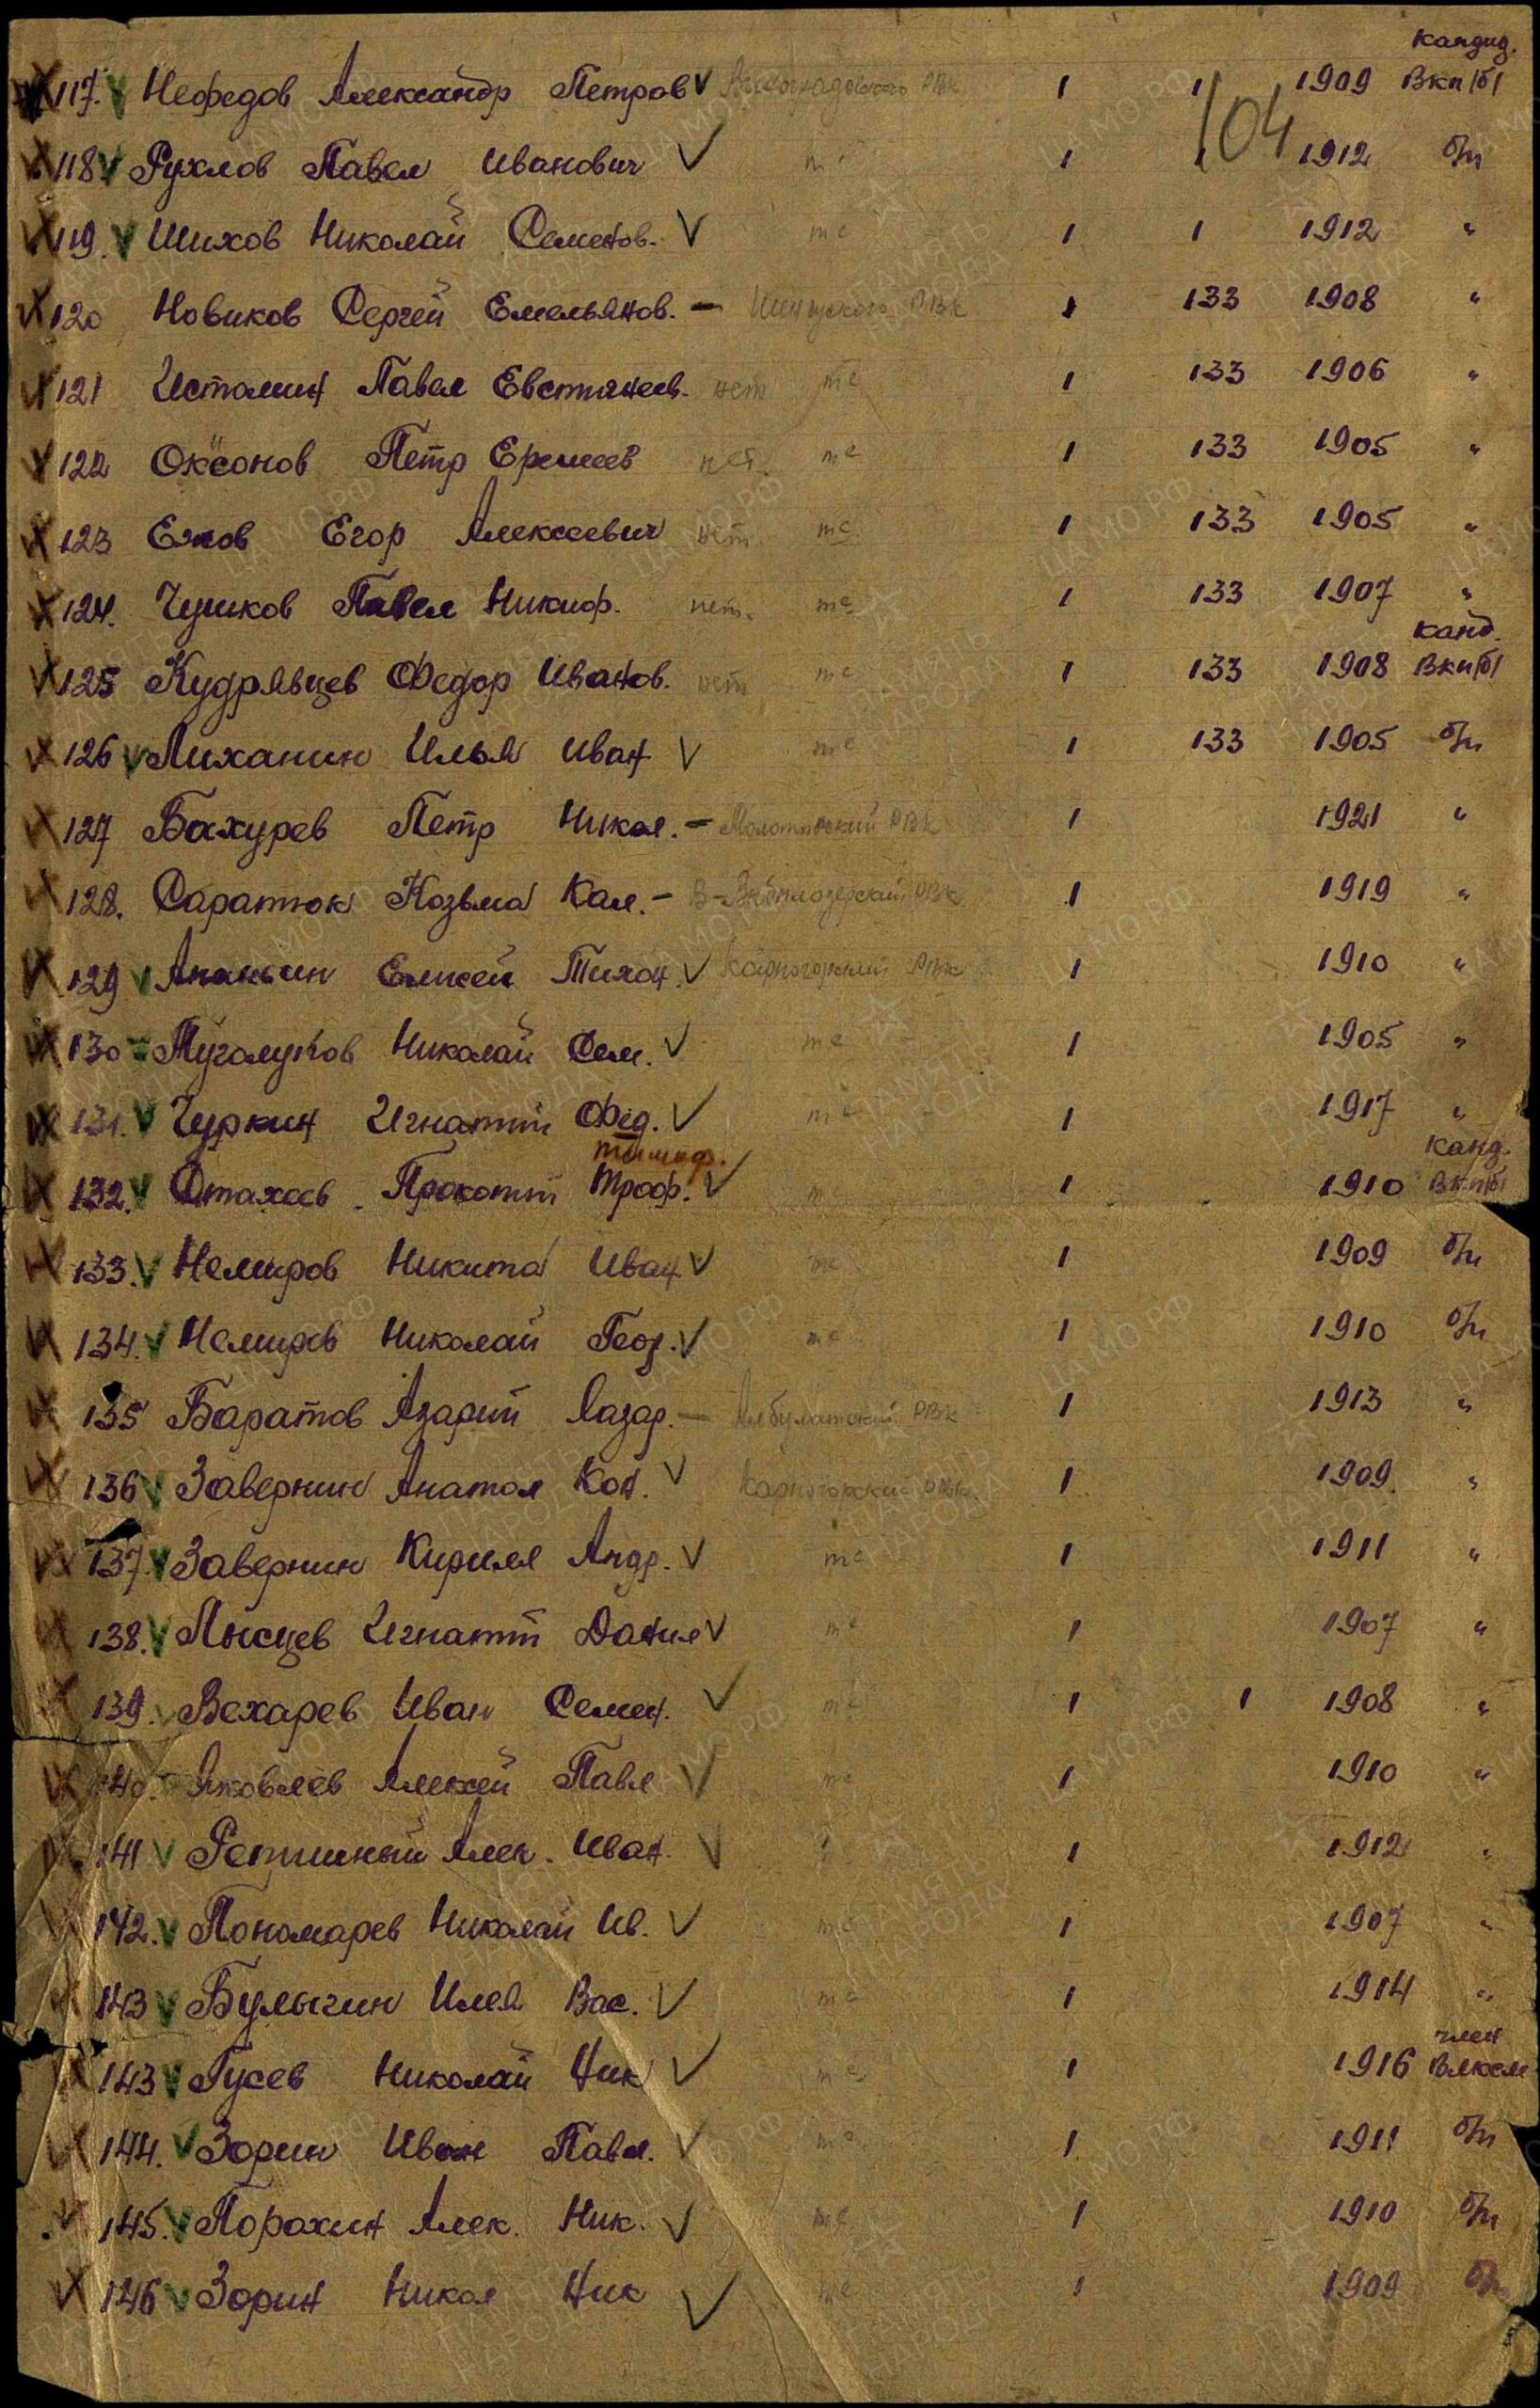 кандид.
117. Нефедов Александр Петров РВК 1 1 1909 Вкп/б/
104
118 Рухлов Павел Иванович т 1 1 1912 б/п
119. Шихов Николай Семенов. те 1 1 1912 "
120 Новиков Сергей Емельянов. - РВК 1 133 1908 "
121 Истомин Павел Евстигнеев. нет те 1 133 1906 "
122 Оксонов Петр Еремеев нет. те 1 133 1905 "
123 Ежов Егор Алексеевич нет те 1 133 1905 "
124. Чушков Павел Никиф. нет. те 1 133 1907 "
канд.
125 Кудрявцев Федор Иванов. нет те 1 133 1908 Вкп/б/
126 Лиханин Илья Иван те 1 133 1905 б/п
127 Бахурев Петр Никол. - РВК 1 1921 "
128. Саратюк Козьма Кал. - РВК 1 1919 "
129 Ананьин Елисей Тихон. Карпогорский РВК 1 1910 "
130 Туголуков Николай Сем. те 1 1905 "
131. Чуркин Игнатий Фед. те 1 1917 "
тимоф. канд.
132. Стахеев Прокопий Троф. те 1 1910 Вкп/б/
133. Немиров Никита Иван те 1 1909 б/п
134. Немиров Николай Геор. те 1 1910 б/п
135 Баратов Азарий Лазар. - РВК 1 1913 "
136 Завернин Анатол Кон. Карпогорский РВК 1 1909. "
137. Завернин Кирилл Андр. те 1 1911 "
138. Лысцев Игнатий Данил те 1 1907 "
139. Вехарев Иван Семен. те 1 1 1908 "
140. Яковлев Алексей Павл те 1 1910 "
141 Репишный Алек. Иван. 1 1912 "
142. Пономарев Николай Ив. те 1 1907 "
143 Булыгин Илья Вас. те 1 1914 "
член
143 Гусев Николай Ник те 1 1916 Влксм
144. Зорин Иван Павл. те 1 1911 б/п
145. Порохин Алек. Ник. те 1 1910 б/п
146 Зорин Никол Ник те 1 1909 б/п